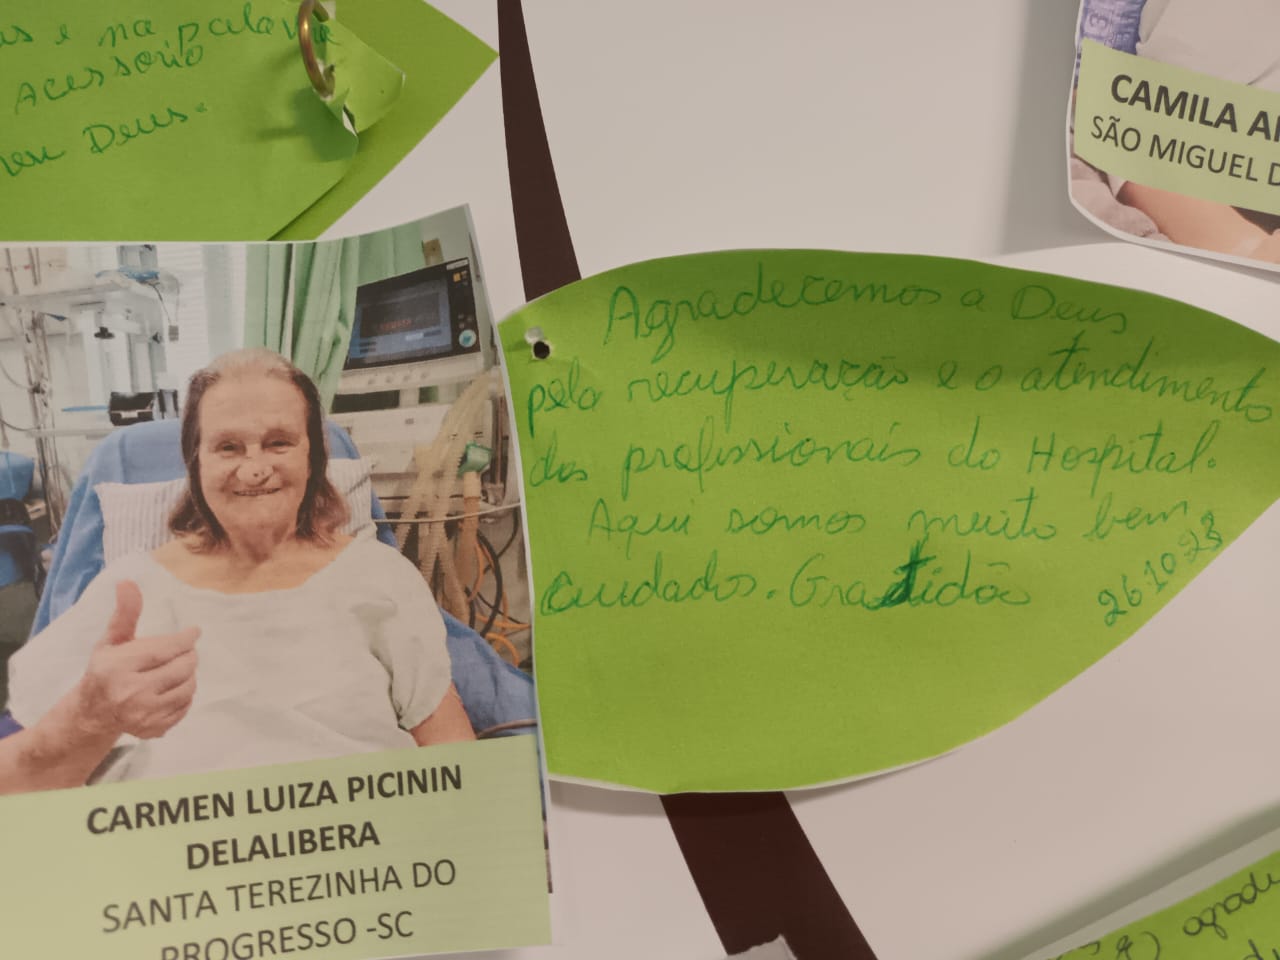 e na palavra
Acessório
Deus.
CAMILA
SÃO MIGUEL D
Agradecemos a Deus
pela recuperação e o atendimento
dos profissionais do Hospital.
Aqui somos muito bem
cuidados. Gratidão
26.10.23
CARMEN LUIZA PICININ
DELALIBERA
SANTA TEREZINHA DO
PROGRESSO -SC